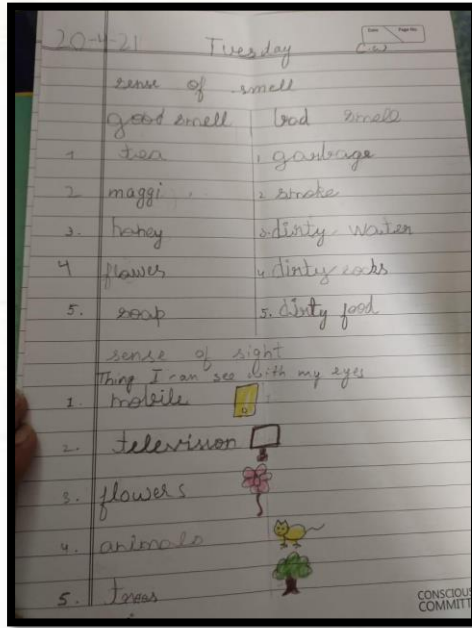 Date Page No.
20-4-21 Tuesday CW
sense of smell
good smell bad smell
1 tea 1. garbage
2 maggi 2. smoke
3. honey 3. dirty water
4 flower 4. dirty socks
5. soap 5. dirty food
sense of sight
Thing I can see with my eyes
1. mobile
2. television
3. flowers
4. animals
5. trees
CONSCIOUS
COMMITT